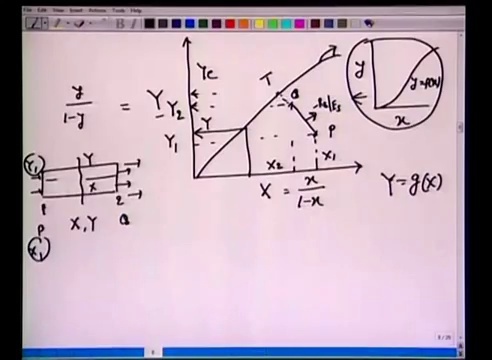 File Edit View Insert Actions Tools Help
y/(1-y) = Y
Y2
Y1
Yc
T
Q
R2/Es
P
Y
X2
X1
X = x/(1-x)
Y = g(X)
y
y = f(x)
x
Y1
Y
X
1
2
P
X, Y
Q
X1